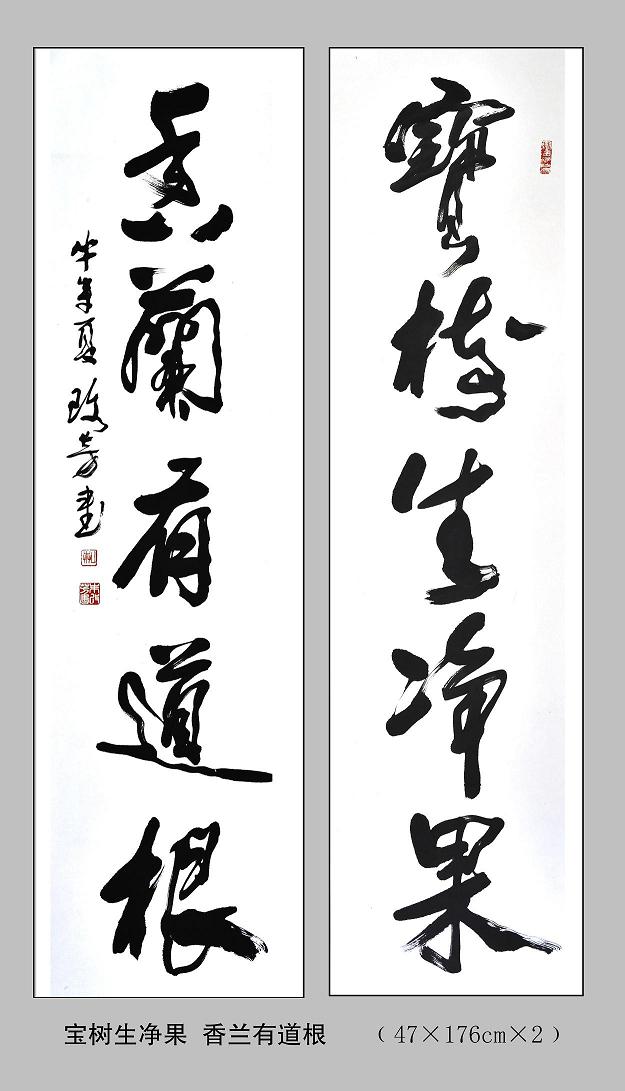 寶樹生净果
香蘭有道根
牛年夏 琇芳書
宝树生净果 香兰有道根 （47×176cm×2）